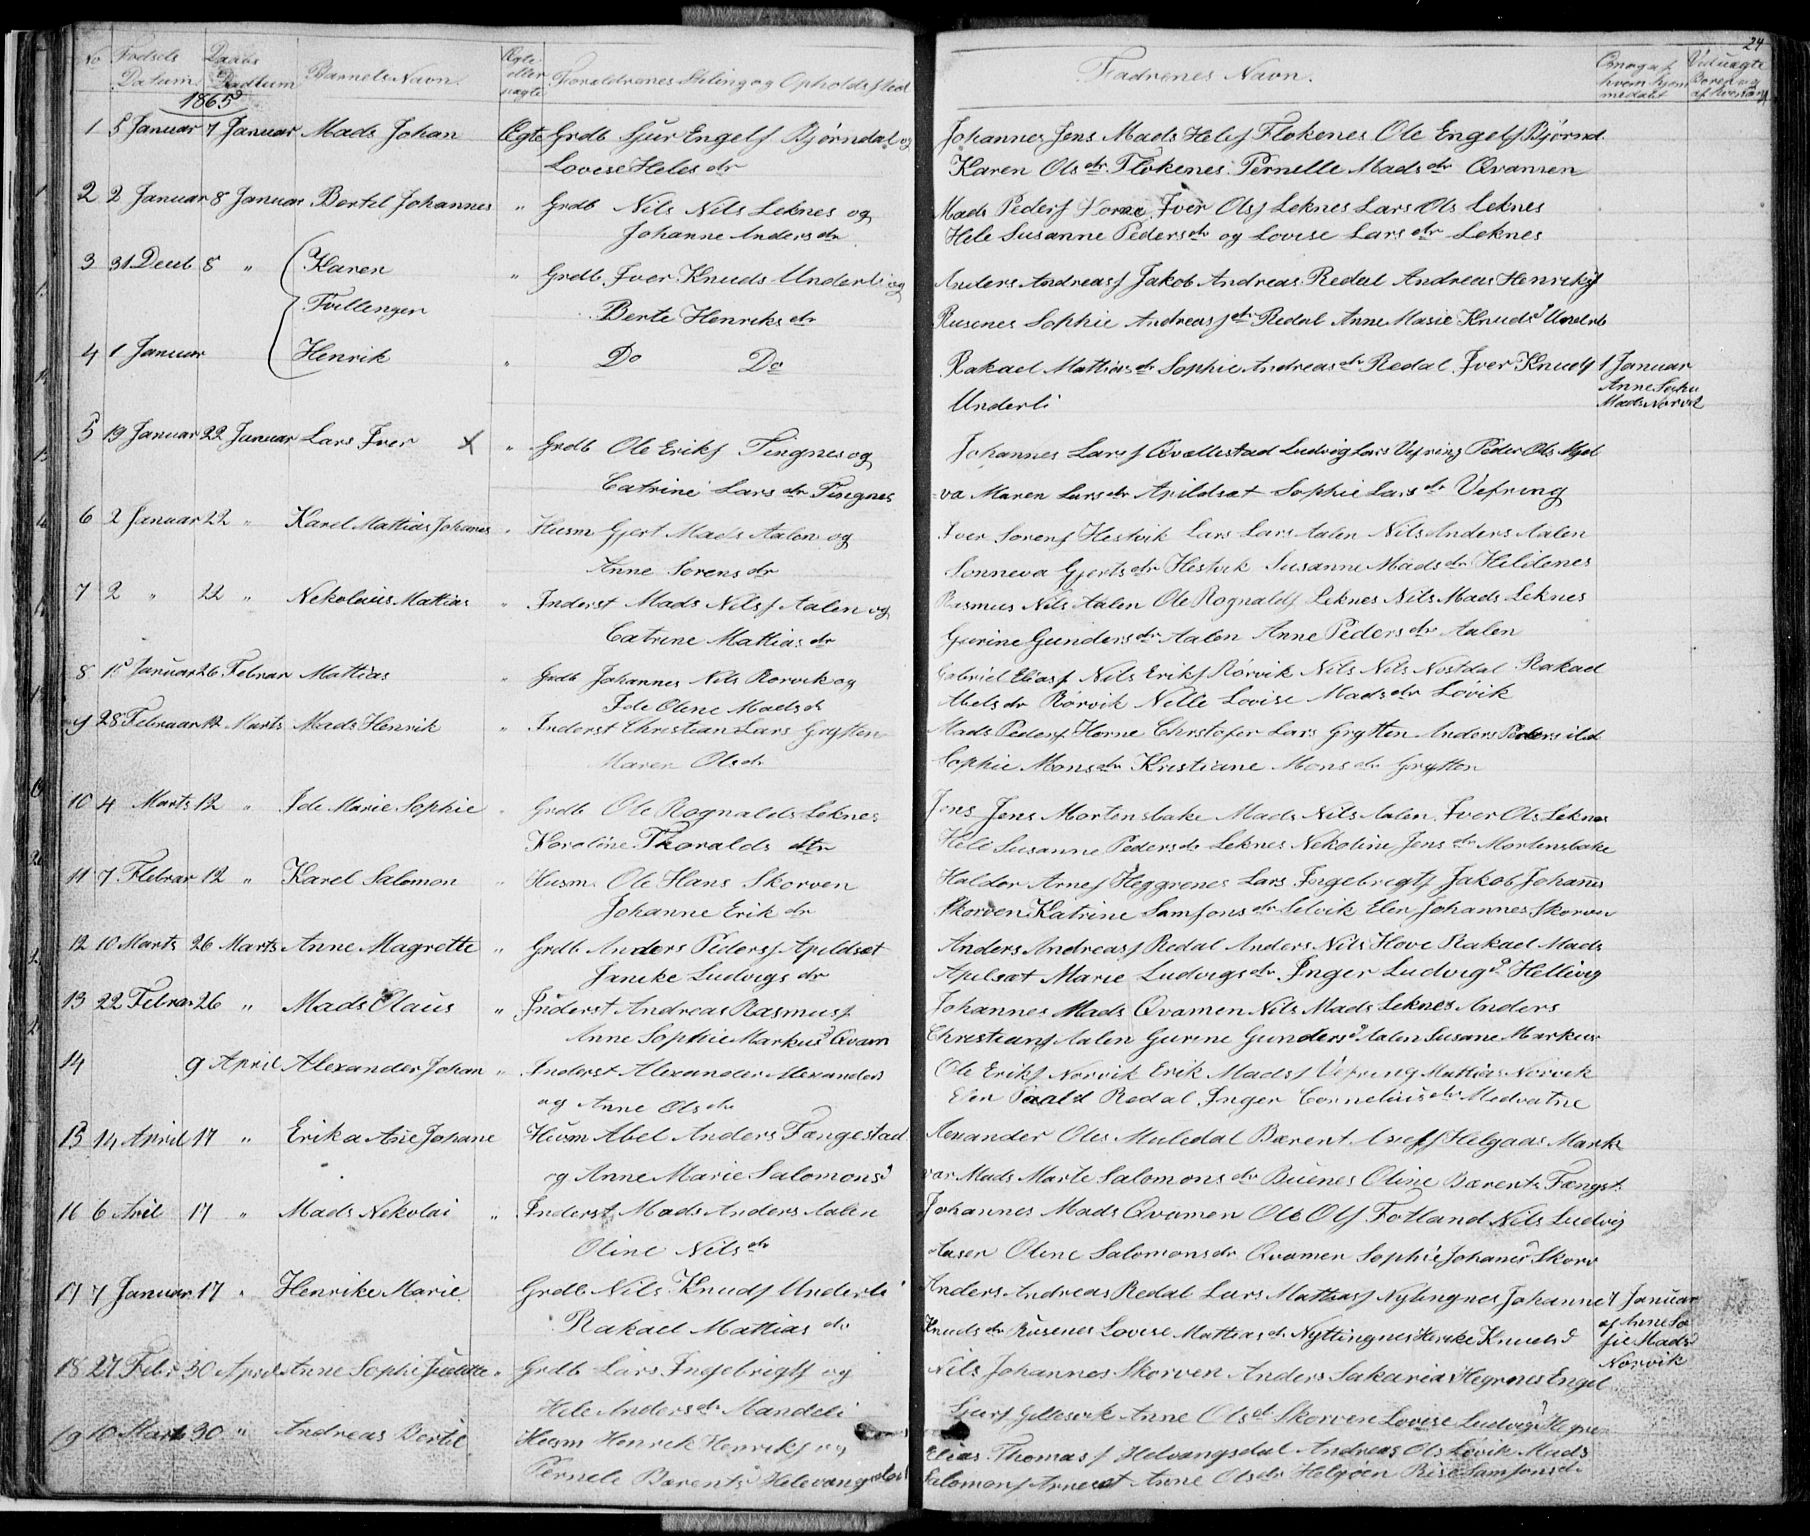 24
No Fødsels Datum Daabs Dadtum Barnets Navn Ægte eller uægte Foraldrenes Stiling og Opholdssted Fadrenes Navn. Om og af hvem hjem medøbt Viduagte Boren og af hvem
1865
1 5 Januar 7 Januar Mads Johan Ægte Grdb Sjur Engels Bjørndal og Johannes Jens Mads Heles Flokenes Ole Engels Bjørnd
Lovise Heles dr Karen Ols dr Flokenes Pernelle Mads dr Qvamen
2 2 Januar 8 Januar Bertel Johannes " Grdb Nils Nils Leknes og Mads Peders Horne Iver Ols Leknes Lars Ols Leknes
Johanne Anders dr Hele Susanne Peders dr og Lovise Lars dr Leknes
3 31 Decb 8 " Karen " Grdb Iver Knuds Underli og Anders Andreas Jakob Andreas Redal Andreas Henriks
Tvillenger Berte Henriks dr Rusenes Sophie Andreas dr Redal Anne Marie Knuds Underli
4 1 Januar Henrik " Do Do Rakael Mattias dr Sophie Andreas dr Redal Iver Knuds 1 Januar
Underli Anne Sophie Mads Norvik
5 19 Januar 22 Januar Lars Iver x " Grdb Ole Eriks Tingnes og Johannes Lars Qvallestad Ludvig Lars Vefring Peder Ols
Catrine Lars dr Tingnes va Maren Lars dr Apildsæt Sophie Lars dr Vefring
6 2 Januar 22 " Karel Mattias Johanes " Husm Gjert Mads Aalen og Iver Sorens Hestvik Lars Lars Aalen Nils Anders Aalen
Anne Sorens dr Sonneva Gjerts dr Hestvik Susanne Mads dr Heldenes
7 2 " 22 " Nekolaus Mattias " Inderst Mads Nils Aalen og Rasmus Nils Aalen Ole Rognalds Leknes Nils Mads Leknes
Catrine Mattias dr Gurine Gunders dr Aalen Anne Peders dr Aalen
8 15 Januar 26 Februar Mattias " Grdb Johannes Nils Rorvik og Gabriel Elias Nils Eriks Rørvik Nils Nils Nostdal Rakael
Ide Oline Mads dr Abels dr Rørvik Nille Lovise Mads dr Lovik
9 28 Februar 12 Marts Mads Henrik " Inderst Christian Lars Grytten Mads Peders Horne Christofer Lars Grytten Anders Peders
Maren Ols dr Sophie Mons dr Kristiane Mons dr Grytten
10 4 Marts 12 " Ide Marie Sophie " Grdb Ole Rognalds Leknes Jens Jens Mortensbake Mads Nils Aalen Iver Ols Leknes
Karoline Thoralds dtr Hele Susanne Peders dr Leknes Nekoline Jens dr Mortensbake
11 7 Februar 12 " Karel Salomon " Husm Ole Hans Skorven Haldor Arnes Heggrenes Lars Ingebregts Jakob Johanes
Johanne Erik dr Skorven Katrine Samsons dr Selvik Elen Johannes Skorven
12 10 Marts 26 Marts Anne Magrette " Grdb Anders Peders Apeldsæt Anders Andreas Redal Anders Nils Hove Rakael Mads
Janike Ludvigs dr Apelsæt Marie Ludvigs dr Inger Ludvigs Hellevig
13 22 Febrar 26 " Mads Olaus " Inderst Andreas Rasmus Johannes Mads Qvamen Nils Mads Leknes Anders
Anne Sophie Markus Qvam Christians Aalen Gurine Gunders Aalen Susane Markus
14 9 April Alexander Johan " Inderst Alexander Alexanders Ole Eriks Norvik Erik Mads Vefring Mattias Norvik
og Anne Ols dr Elen Redal Inger Cornelius dr Medvatne
15 14 April 17 " Erika Ane Johane Husm Abel Anders Fangestad Alexander Oles Muledal Bærent Axels Helgaas Mark
og Anne Marie Salomons var Mads Marte Salomons dr Buenes Oline Bærents Fængst
16 6 Avil 17 " Mads Nekolai " Inderst Mads Anders Aalen Johannes Mads Qvamen Ole Ols Fotland Nils Ludvig
Oline Nils dr Aasen Oline Salomons dr Qvamen Sophie Johanes Skorv
17 7 Januar 17 " Henrike Marie Grdb Nils Knuds Underli Anders Andreas Redal Lars Mattias Nytingnes Johanne 7 Januar
Rakael Mattias dr Knuds dr Rusenes Lovise Mattias dr Nyttingnes Henrike Knuds af Anne Sofie Mads Norvik
18 27 Febr 30 April Anne Sophi Juditte " Grdb Lars Ingebrigts og Nils Johannes Skorven Anders Sakaria Hegrenes Engel
Hele Anders dr Mandeli Sjurs Anne Ols d Skorven Lovise Ludvigs Hegren
19 10 Mart 30 " Andreas Bertel Husm Henrik Henriks og Elias Thomas Helvangsdal Andreas Ols Lovik Mads
Pernele Bærents Helevangsdal Salomons Arneset Anne Ols dr Helgøen Samsons dr